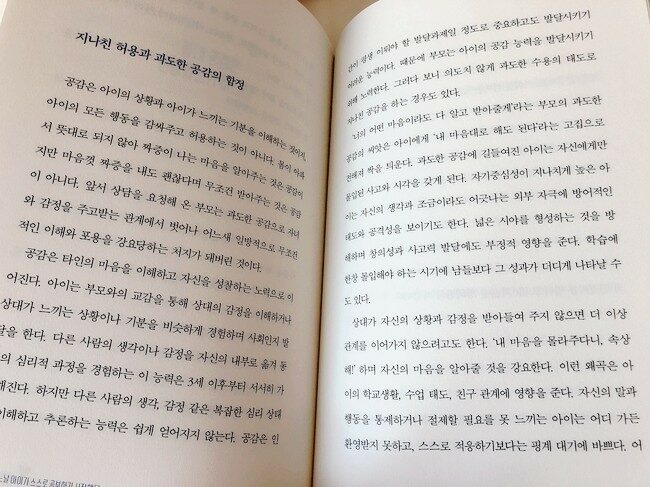 지나친 허용과 과도한 공감의 함정
공감은 아이의 상황과 아이가 느끼는 기분을 이해하는 것이지,
아이의 모든 행동을 감싸주고 허용하는 것이 아니다. 몸이 아파
서 뜻대로 되지 않아 짜증이 나는 마음을 알아주는 것은 공감이
지만 마음껏 짜증을 내도 괜찮다며 무조건 받아주는 것은 공감
이 아니다. 앞서 상담을 요청해 온 부모는 과도한 공감으로 자녀
와 감정을 주고받는 관계에서 벗어나 어느새 일방적으로 무조건
적인 이해와 포용을 강요당하는 처지가 돼버린 것이다.
공감은 타인의 마음을 이해하고 자신을 성찰하는 노력으로 이
어진다. 아이는 부모와의 교감을 통해 상대의 감정을 이해하거나
상대가 느끼는 상황이나 기분을 비슷하게 경험하며 사회인지 발
달을 한다. 다른 사람의 생각이나 감정을 자신의 내부로 옮겨 동
의 심리적 과정을 경험하는 이 능력은 3세 이후부터 서서히 가
해진다. 하지만 다른 사람의 생각, 감정 같은 복잡한 심리 상태
이해하고 추론하는 능력은 쉽게 얻어지지 않는다. 공감은 인
느날 아이가 스스로 공부하기 시작했다
간이 평생 이뤄야 할 발달과제일 정도로 중요하고도 발달시키기
어려운 능력이다. 때문에 부모는 아이의 공감 능력을 발달시키기
위해 노력한다. 그러다 보니 의도치 않게 과도한 수용의 태도로
지나친 공감을 하는 경우도 있다.
'너의 어떤 마음이라도 다 알고 받아줄게'라는 부모의 과도한
공감의 씨앗은 아이에게 '내 마음대로 해도 된다'라는 고집으로
변해져 싹을 틔운다. 과도한 공감에 길들여진 아이는 자신에게만
몰입된 사고와 시각을 갖게 된다. 자기중심성이 지나치게 높은 아
이는 자신의 생각과 조금이라도 어긋나는 외부 자극에 방어적인
태도와 공격성을 보이기도 한다. 넓은 시야를 형성하는 것을 방
해하며 창의성과 사고력 발달에도 부정적 영향을 준다. 학습에
한창 몰입해야 하는 시기에 남들보다 그 성과가 더디게 나타날 수
도 있다.
상대가 자신의 상황과 감정을 받아들여 주지 않으면 더 이상
관계를 이어가지 않으려고도 한다. '내 마음을 몰라주다니, 속상
해!' 하며 자신의 마음을 알아줄 것을 강요한다. 이런 왜곡은 아
이의 학교생활, 수업 태도, 친구 관계에 영향을 준다. 자신의 말과
행동을 통제하거나 절제할 필요를 못 느끼는 아이는 어디 가든
환영받지 못하고, 스스로 적응하기보다는 핑계 대기에 바쁘다. 어